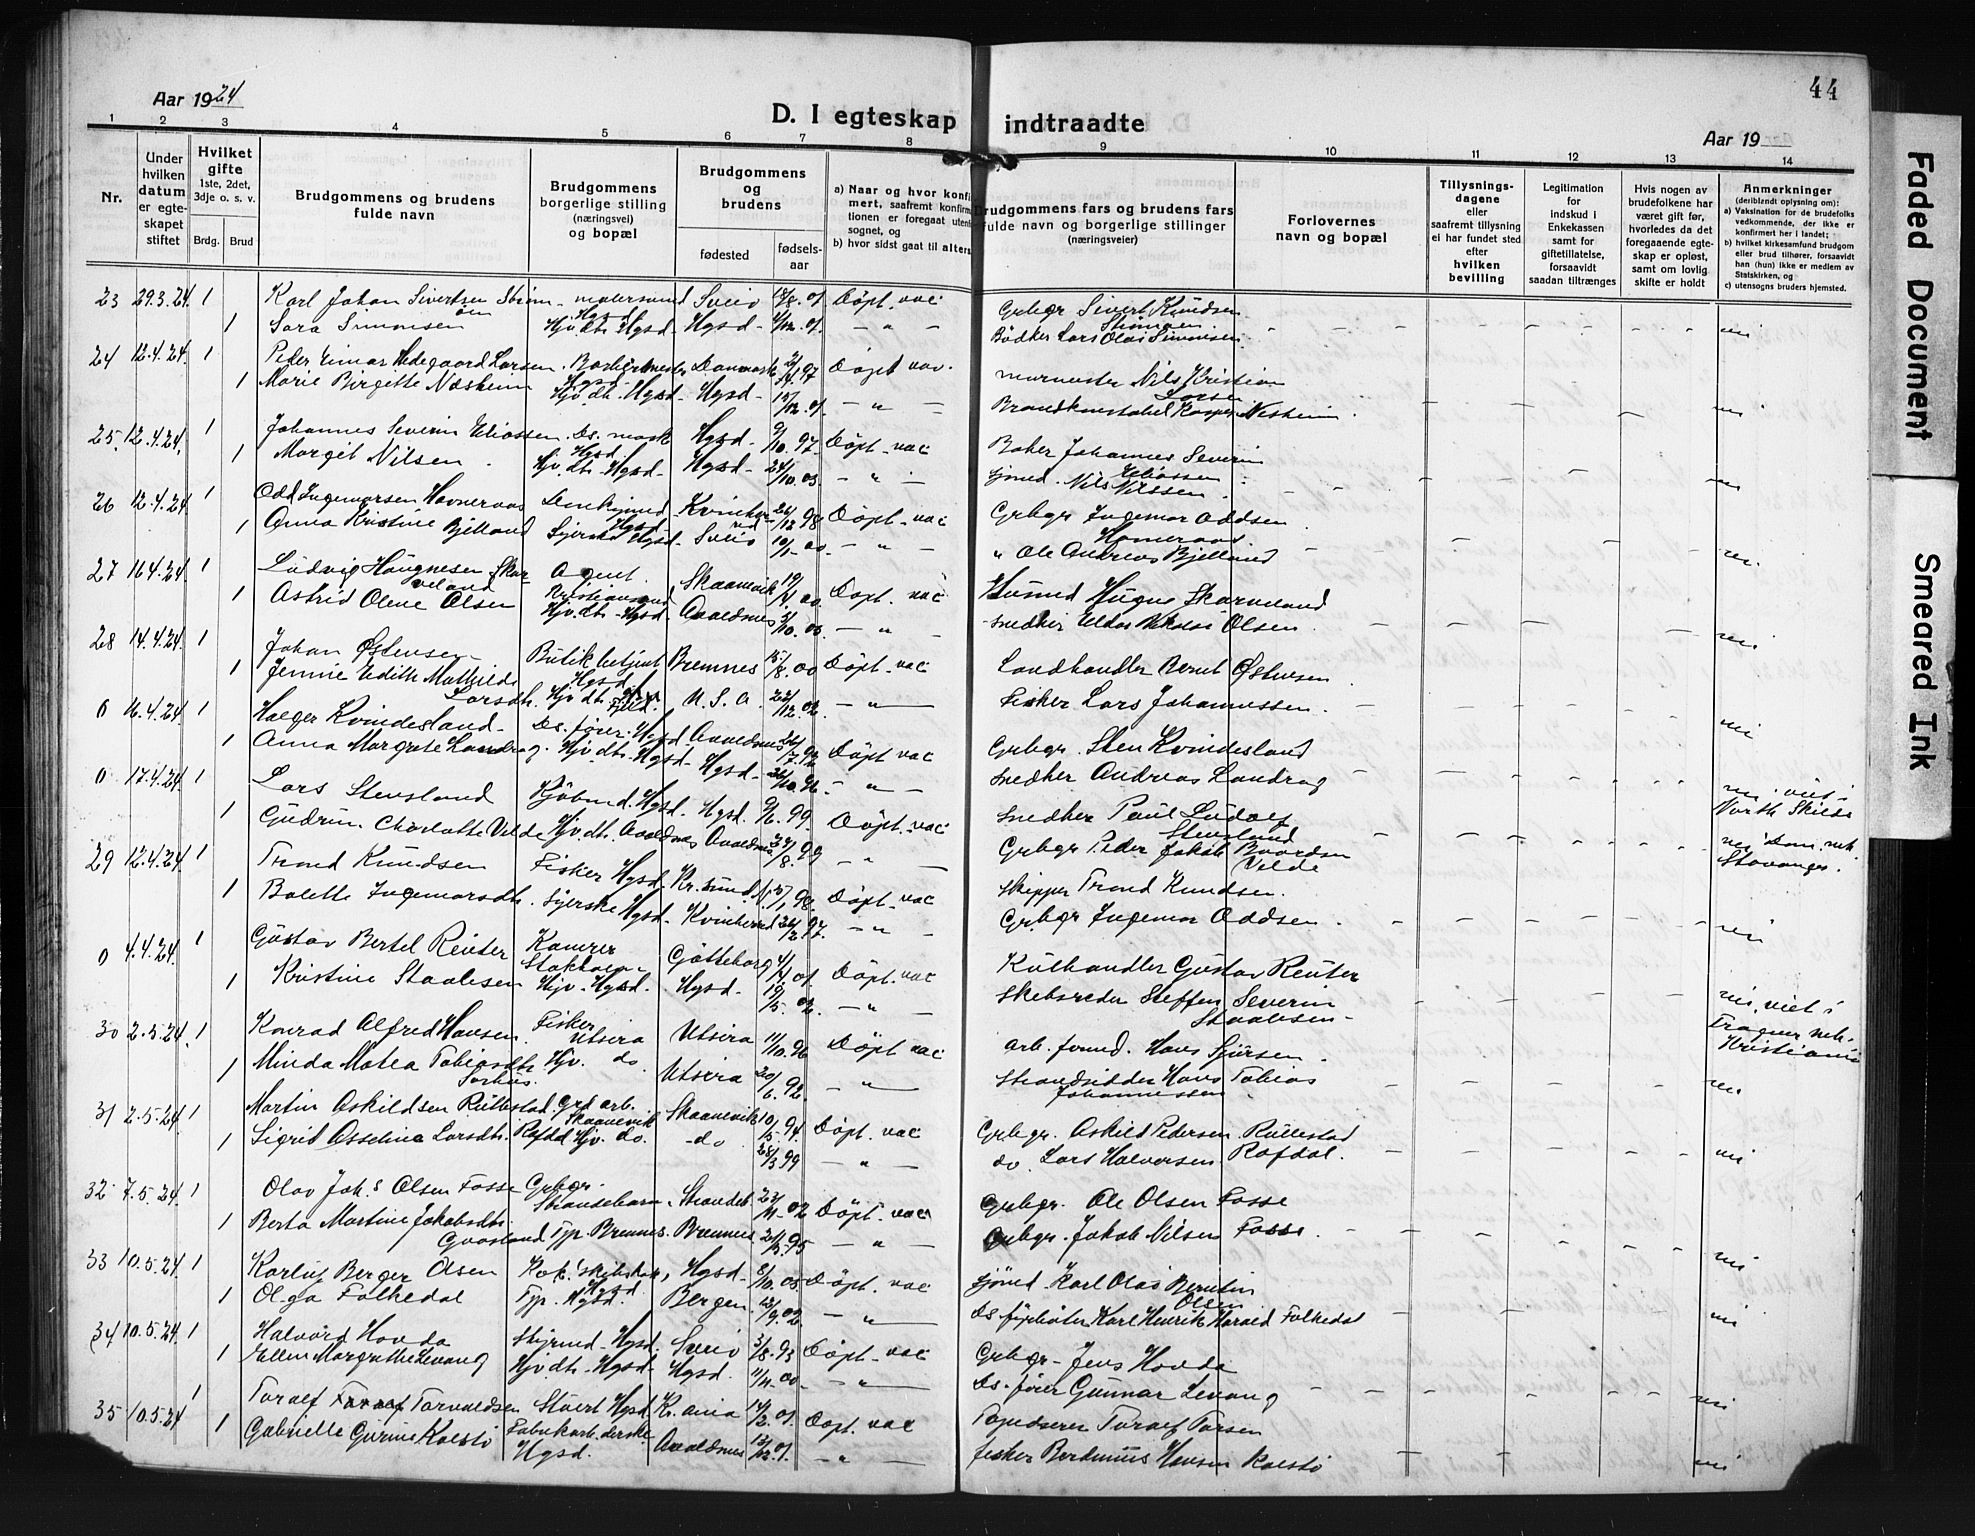 44
Aar 1924
D. I egteskap indtraadte
Aar 19
1 2 3 4 5 6 7 8 9 10 11 12 13 14
Nr.
Under hvilken datum er egteskapet stiftet
Hvilket gifte 1ste, 2det, 3dje o. s. v.
Brdg. Brud
Brudgommens og brudens fulde navn
Brudgommens borgerlige stilling (næringsvei) og bopæl
Brudgommens og brudens
fødested fødsels-aar
a) Naar og hvor konfirmert, saafremt konfirmationen er foregaat utenfor sognet, og
b) hvor sidst gaat til alters
Brudgommens fars og brudens fars fulde navn og borgerlige stillinger (næringsveier)
Forlovernes navn og bopæl
Tillysnings-dagene eller saafremt tillysning ei har fundet sted efter hvilken bevilling
Legitimation for indskud i Enkekassen samt for giftetillatelse, forsaavidt saadan tiltrænges
Hvis nogen av brudefolkene har været gift før, hvorledes da det foregaaende egteskap er opløst, samt om lovlig skifte er holdt
Anmerkninger (deriblandt oplysning om):
a) Vaksination for de brudefolks vedkommende, der ikke er konfirmert her i landet;
b) hvilket kirkesamfund brudgom eller brud tilhører, forsaavidt han (hun) ikke er medlem av Statskirken, og
c) utensogns bruders hjemsted.
23 29.3.24. 1 Karl Johan Sivertsen Strøm- matersmed Sveio 12/8.01 Døpt. vac Grbgr Sivert Knudsen
øen Hgsd Strømøen
1 Sara Simonsen Hjv. dtr. Hgsd Hgsd - 4/12.01. - " - Bødker Lars Olai Simonsen. nei
24 12.4.24. 1 Peder Einar Hedegaard Larsen. Danmark 97 Døpt vac. murmester Nils Kristian
Hgsd Larsen
1 Marie Birgitte Næsheim Hjv. dtr. Hgsd - Hgsd - 12.01. - " - Brandkonstabel Kasper Nesheim. nei
25. 12.4.24. 1 Johannes Severin Eliassen. Ds. mask Hgsd - 9/10.97. Døpt - vac Baker Johannes Severin
Hgsd Eliassen
1 Margit Nilsen. Hjv. dtr. Hgsd - Hgsd - 24/10.03. - " - sjømd. Nils Nilssen. nei
26 12.4.24. 1 Odd Ingemarsen Havneraas Hgsd - 12.98 Døpt - vac Grbgr Ingemar Oddsen
1 Anna Kristine Bjelland Syerske Hgsd - Sveio 1-00. - " - " Ole Andreas Bjelland nei.
27 16.4.24. 1 Ludvig Haugnesen Skar- Agent. Skaanevik 19/4.00. Døpt. vac Skarveland
veland Kristiansund
1 Astrid Olene Olsen Hjv. dtr - Hgsd - Avaldsnes 3/10.03. - " - snedker Olsen. nei
28 14.4.24. 1 Johan Østensen Butikbetjent Bremnes 15/8.00 Døpt - vac Landhandler Bernt Østensen
Hgsd
1 Jennie Edith Mathilde Larsdtr. Hjv. dtr. U. S. A. 22/12.02. - " - Fisker Lars Johannessen. nei
0 16.4.24. 1 Holger Kvindesland - Ds. fører. Hgsd Avaldsnes 7.92 Døpt vac Grbgr. Sten Kvindesland
1 Anna Margrete Landrag. Hjv. dtr. Hgsd - Hgsd - 10.96. - " - snedker Andreas Landrag
0 17.4.24 1 Lars Stensland Kjøbmd. Hgsd. Hgsd. 9/6.99. Døpt - vac snedker Paul Ludolf Stensland nei. viet i North Skilds
1 Gudrun Charlotte Velde Hjv. dtr. Avaldsnes Avaldsnes 8.99 - " - Grbgr Peder Jakob Baardsen Velde nei Dom. kirk. Stavanger.
29 12.4.24. 1 Trond Knudsen Fisker Hgsd. Kr. sund N. 1.98. Døpt - vac skipper Trond Knudsen.
1 Bolette Ingemarsdtr. Syerske Hgsd - Kvinherred 2.97. - " - Grbgr Ingemar Oddsen. nei
0 4.4.24. 1 Gustav Bertel Reuter Kamrer Gøtteborg 4/4.01. Døpt. vac Kulhandler Gustav Reuter
Stokholm -
1 Kristine Staalesen Hjv. Hgsd. Hgsd. 19/5.02. - " - Skibsreder Steffen Severin Staalesen - nei, viet i Frogner kirk. Kristiania
30 2.5.24. 1 Konrad Alfred Hansen. Fisker Utsira Utsira 11/10.96 Døpt vac arb. formd. Hans Sjursen.
1 Minda Matea Tobiasdtr. Hjv. do. Utsira 20/6.92. - " - Strandsidder Hans Tobias Johannessen nei
31 2.5.24. 1 Martin Askildsen Rullestad. grd arb. Skaanevik Skaanevik 10/5.94. Døpt. vac Grbgr. Askild Pedersen Rullestad
1 Sigrid Osselina Larsdtr. Rafdal Hjv. do. - do 28/3.99 - " - do. Lars Halvorsen Rafdal. nei
32 7.5.24. 1 Olav Joh.s Olsen Fosse Grbgr. Strandebarm, Strandeb. 23/11-02 Døpt. vac Grbgr. Ole Olsen Fosse
1 Berta Martine Jakobsdtr. Gaasland Tjp. Bremnes. Bremnes. 95 - " - Grbgr. Jakob Nilsen Fosse. nei
33 10.5.24. 1 Karluf Berger Olsen Kapt. skibsk., Hgsd - 8/10.03 Døpt. vac sjømd. Karl Olai Berntin Olsen
Hgsd
1 Olga Folkedal Tjp. Hgsd. Bergen. 9.02. - " - Ds. fyrbøter Karl Henrik Harald Folkedal nei
34 10.5.24. 1 Halvard Hovda Hgsd. Sveio 3/8.93 Døpt. vac Grbgr - Jens Hovda
1 Ellen Margrethe Levang Hjv. dtr. - Hgsd - Hgsd. 11/11.00. - " - Ds. fører Gunnar Levang nei
35 10.5.24 1 Toralf Torvaldsen Stuert Hgsd Kr. ania 14/2.01. Døpt. vac Tapedserer Toralf Torsen
1 Gabrielle Gurine Kolstø Fabrikarbeiderske Hgsd. Avaldsnes 13/12.01. - " - fisker Berdinius Hansen Kolstø nei
Faded Document
Smeared Ink